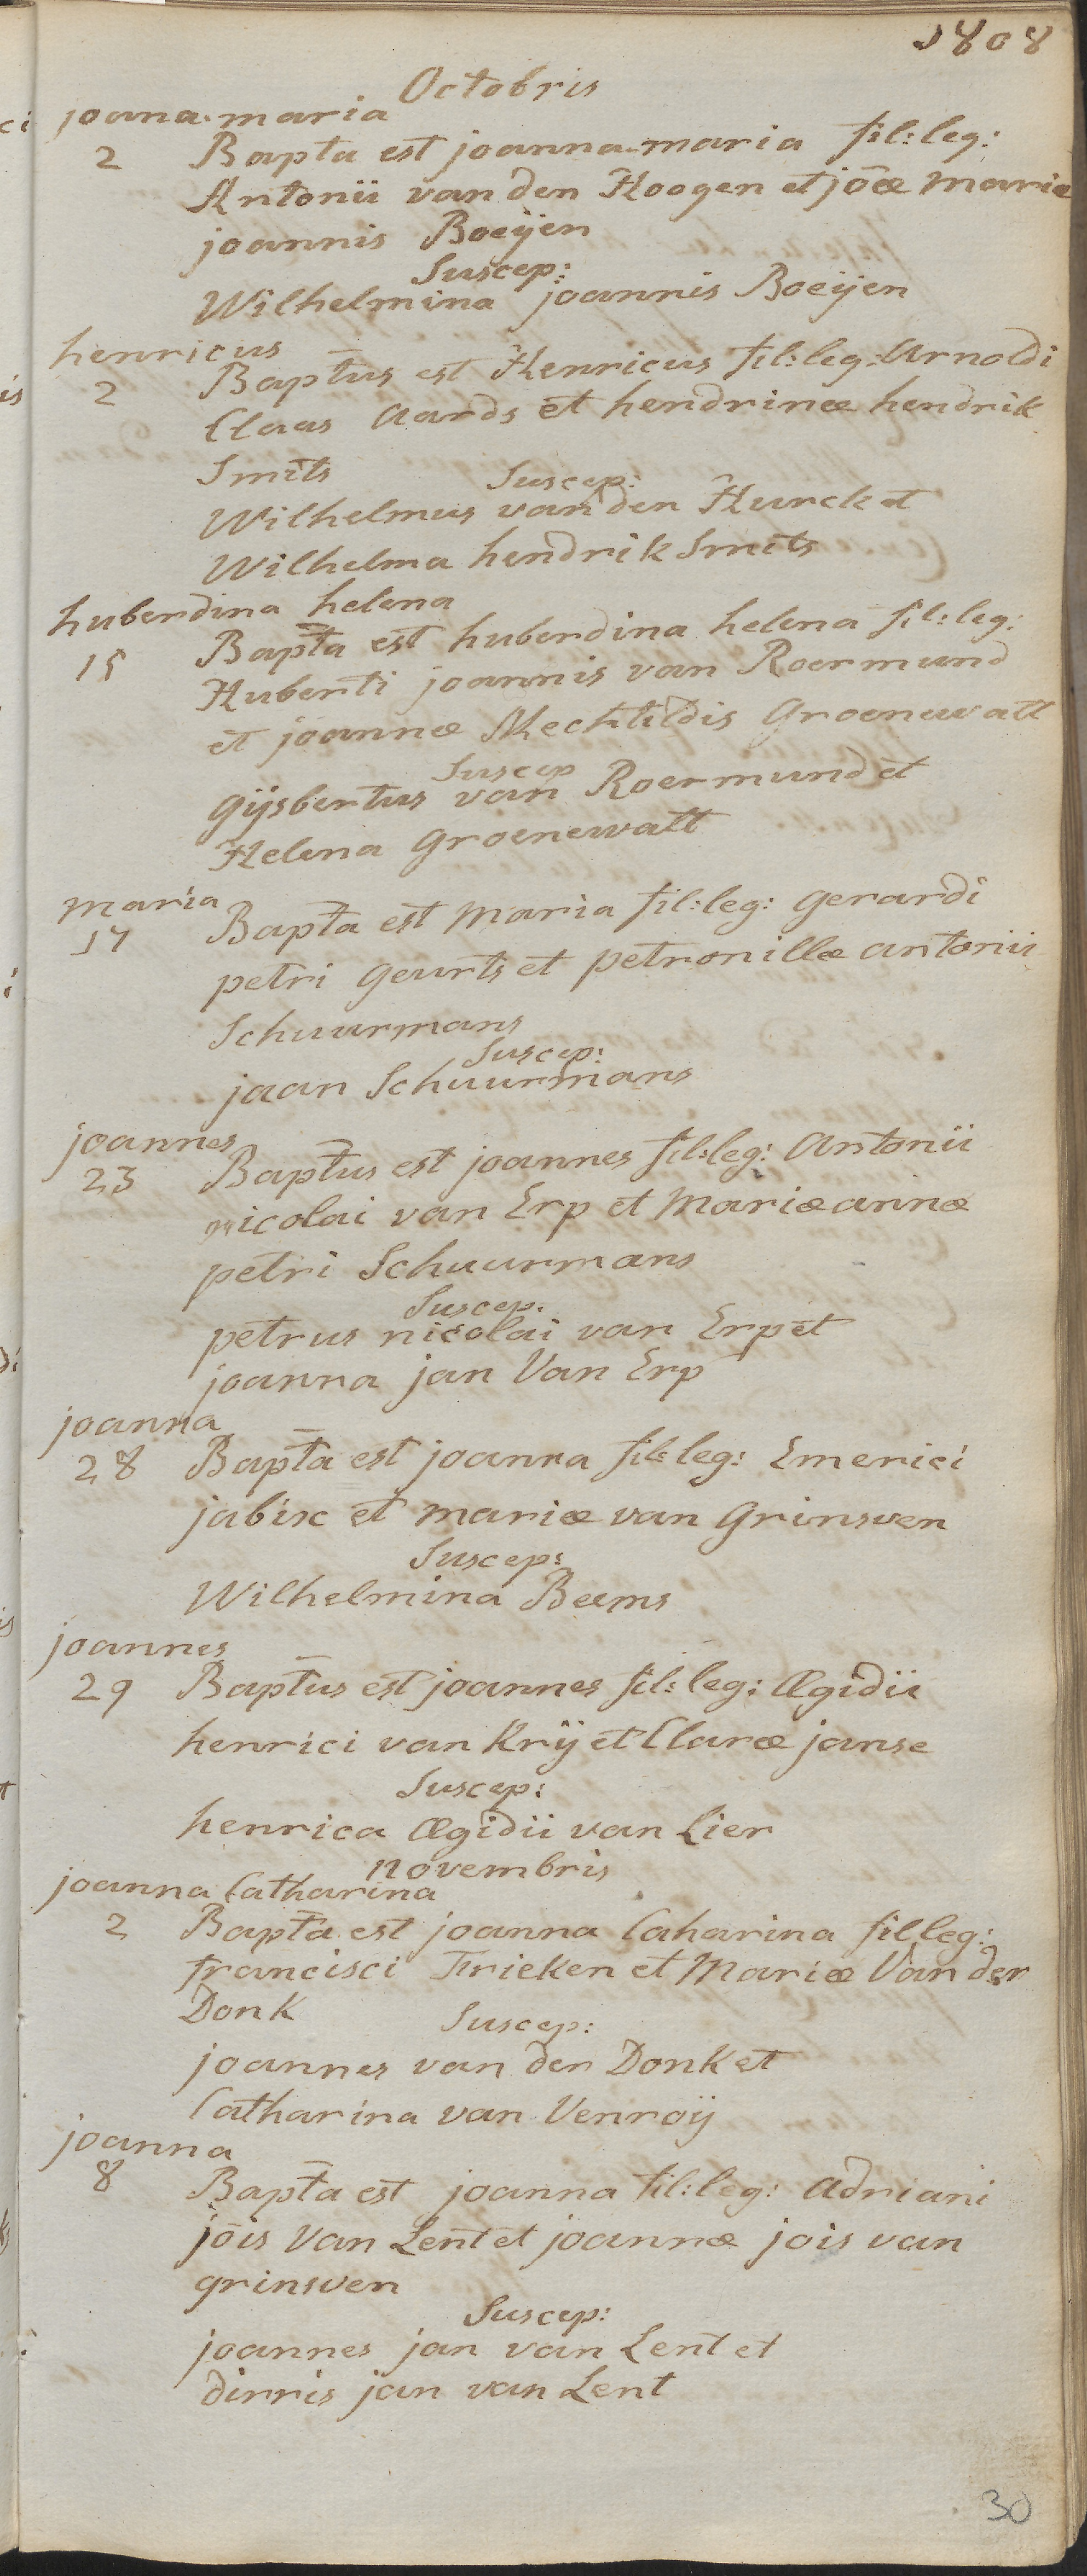 1808
Octobris
joana maria
2 Bapta est joanna maria fil: leg:
Antonii van den Hoogen et jōæ mariæ
joannis Boeijen
Suscep:
Wilhelmina joannis Boeijen
henricus
2 Baptus est Henricus fil: leg: Arnoldi
Claas Aards et hendrinæ hendrik
Smits
Suscep:
Wilhelmus van den Hurck et
Wilhelma hendrik Smits
huberdina helena
15 Bapta est huberdina helena fil: leg:
Huberti joannis van Roermund
et joannæ Mechtildis Groenewatt
Suscep
Gijsbertus van Roermund et
Helena Groenewatt
maria
17 Bapta est Maria fil: leg: Gerardi
petri Geurts et petronillæ antonii
Schuurmans
Suscep:
jaan Schuurmans
joannes
23 Baptus est joannes fil: leg: Antonii
nicolai van Erp et Mariæ annæ
petri Schuurmans
Suscep:
petrus nicolai van Erp et
joanna jan Van Erp
joanna
28 Bapta est joanna fil: leg: Emerici
jabix et mariæ van Grinsven
Suscep:
Wilhelmina Beems
joannes
29 Baptus est joannes fil: leg: Ægidii
henrici van Krij et Claræ janse
Suscep:
henrica Ægidii van Lier
novembris
joanna Catharina
2 Bapta est joanna Caharina fil leg:
francisci Frieken et Mariæ Van der
Donk
Suscep:
joannes van der Donk et
Catharina van Venroij
joanna
8 Bapta est joanna fil: leg: Adriani
jōis Van Lent et joannæ jois van
grinsven
Suscep:
joannes jan van Lent et
dirris jan van Lent
30